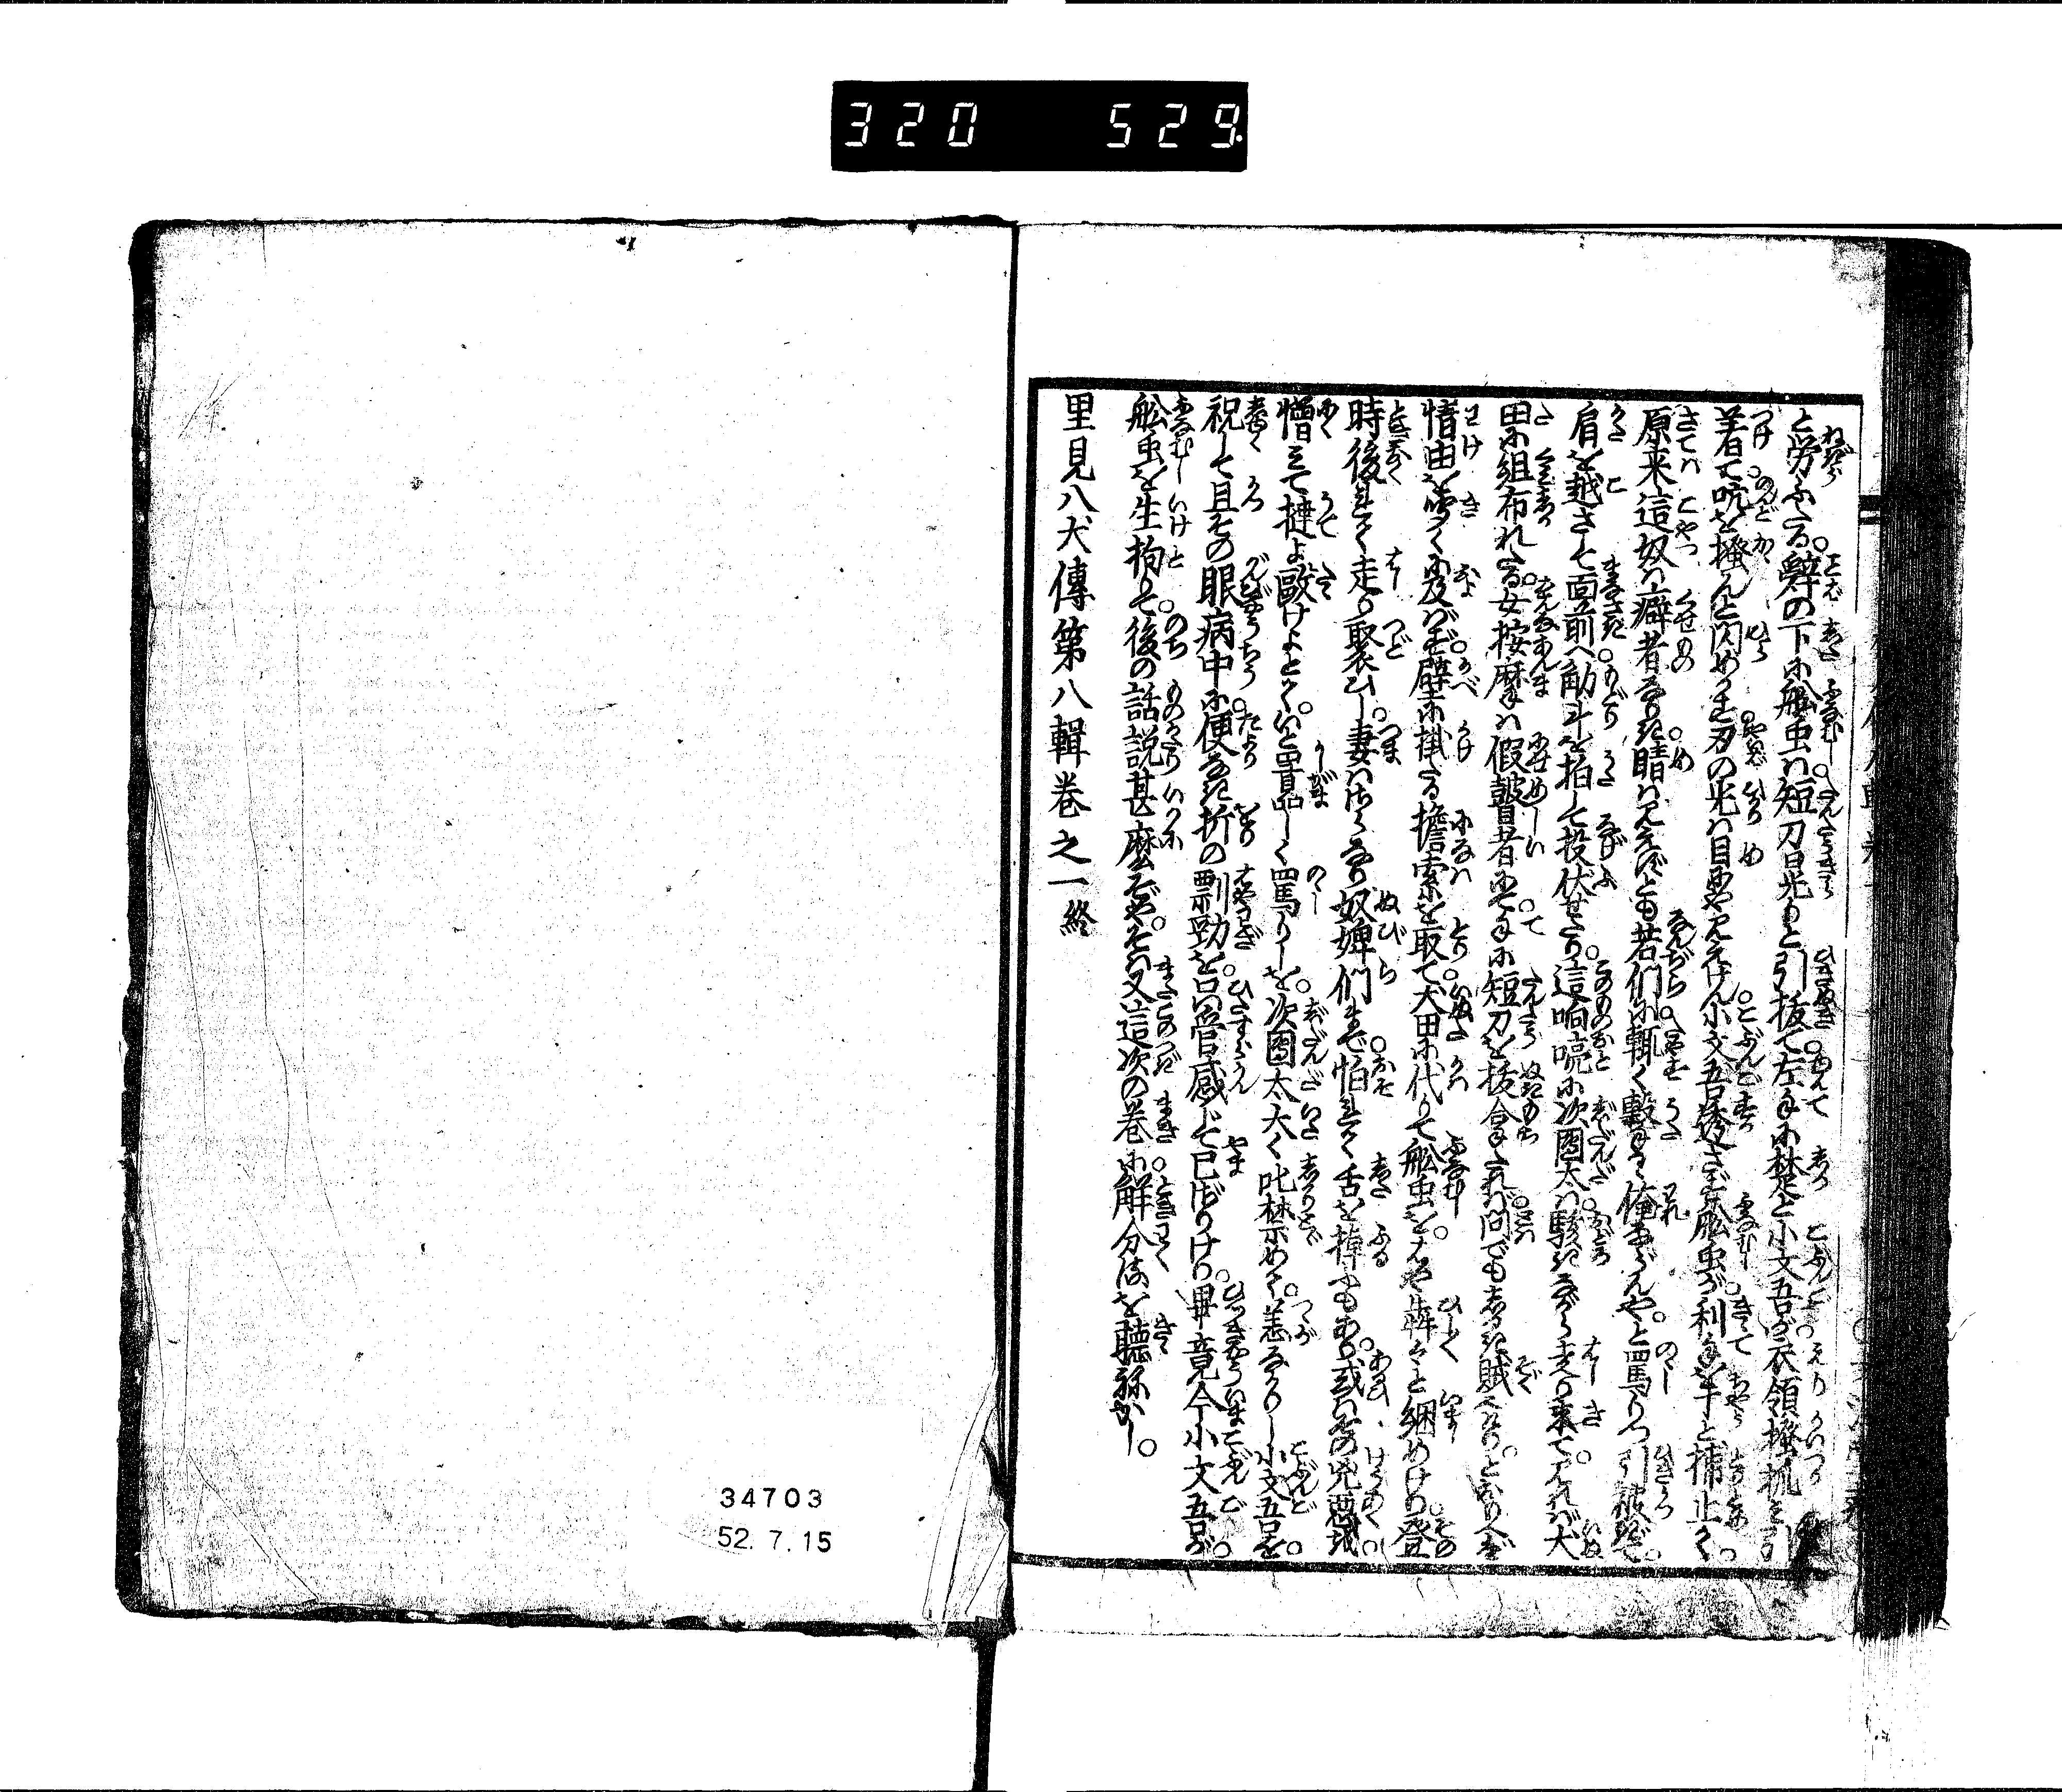 320 529
と労ふたる。辞の下に舩虫は短刀晃りと引抜て左手に楚と小文吾が衣領掻抓み引
著て吭を掻んと閃めかす刃の光は目にや見えけん小文吾透さず舩虫が利手を丁と捕止めて
原来這奴は癖者なりき睛は見えずとも若們に輙く撃るゝ俺ならんや。と罵りつ引被ぎて。
肩を越させて面前へ觔斗を拍して投伏せたり。這响喨に次團太は駭きながら走り来て。見れば犬
田に組布れたる。女按摩は假瞽者にて手に短刀を抜合たれば。問でもしるき賊へなり。とばかり
情由を聞くに及ばず。壁に掛たる擔索を取て犬田に代りて舩虫を。はや犇々と綑めけり。登
時後れて走り聚ひし。妻はさらなり奴婢們まで。怕れて舌を掉ふもあり。或はその兇悪を
憎みて。撻よ敺けよとて。いと囂しく罵りしを。次團太大く叱禁めて。恙なかりし小文吾を
祝して且その眼病中に。便なき折の剽勁を。只管感じて已ざりけり。畢竟今小文吾が。
舩虫を生拘りて。後の話説甚麼ぞや。そは又這次の巻に。解分るを聴ねかし。
里見八犬傳第八輯巻之一終
34703
52.7.15